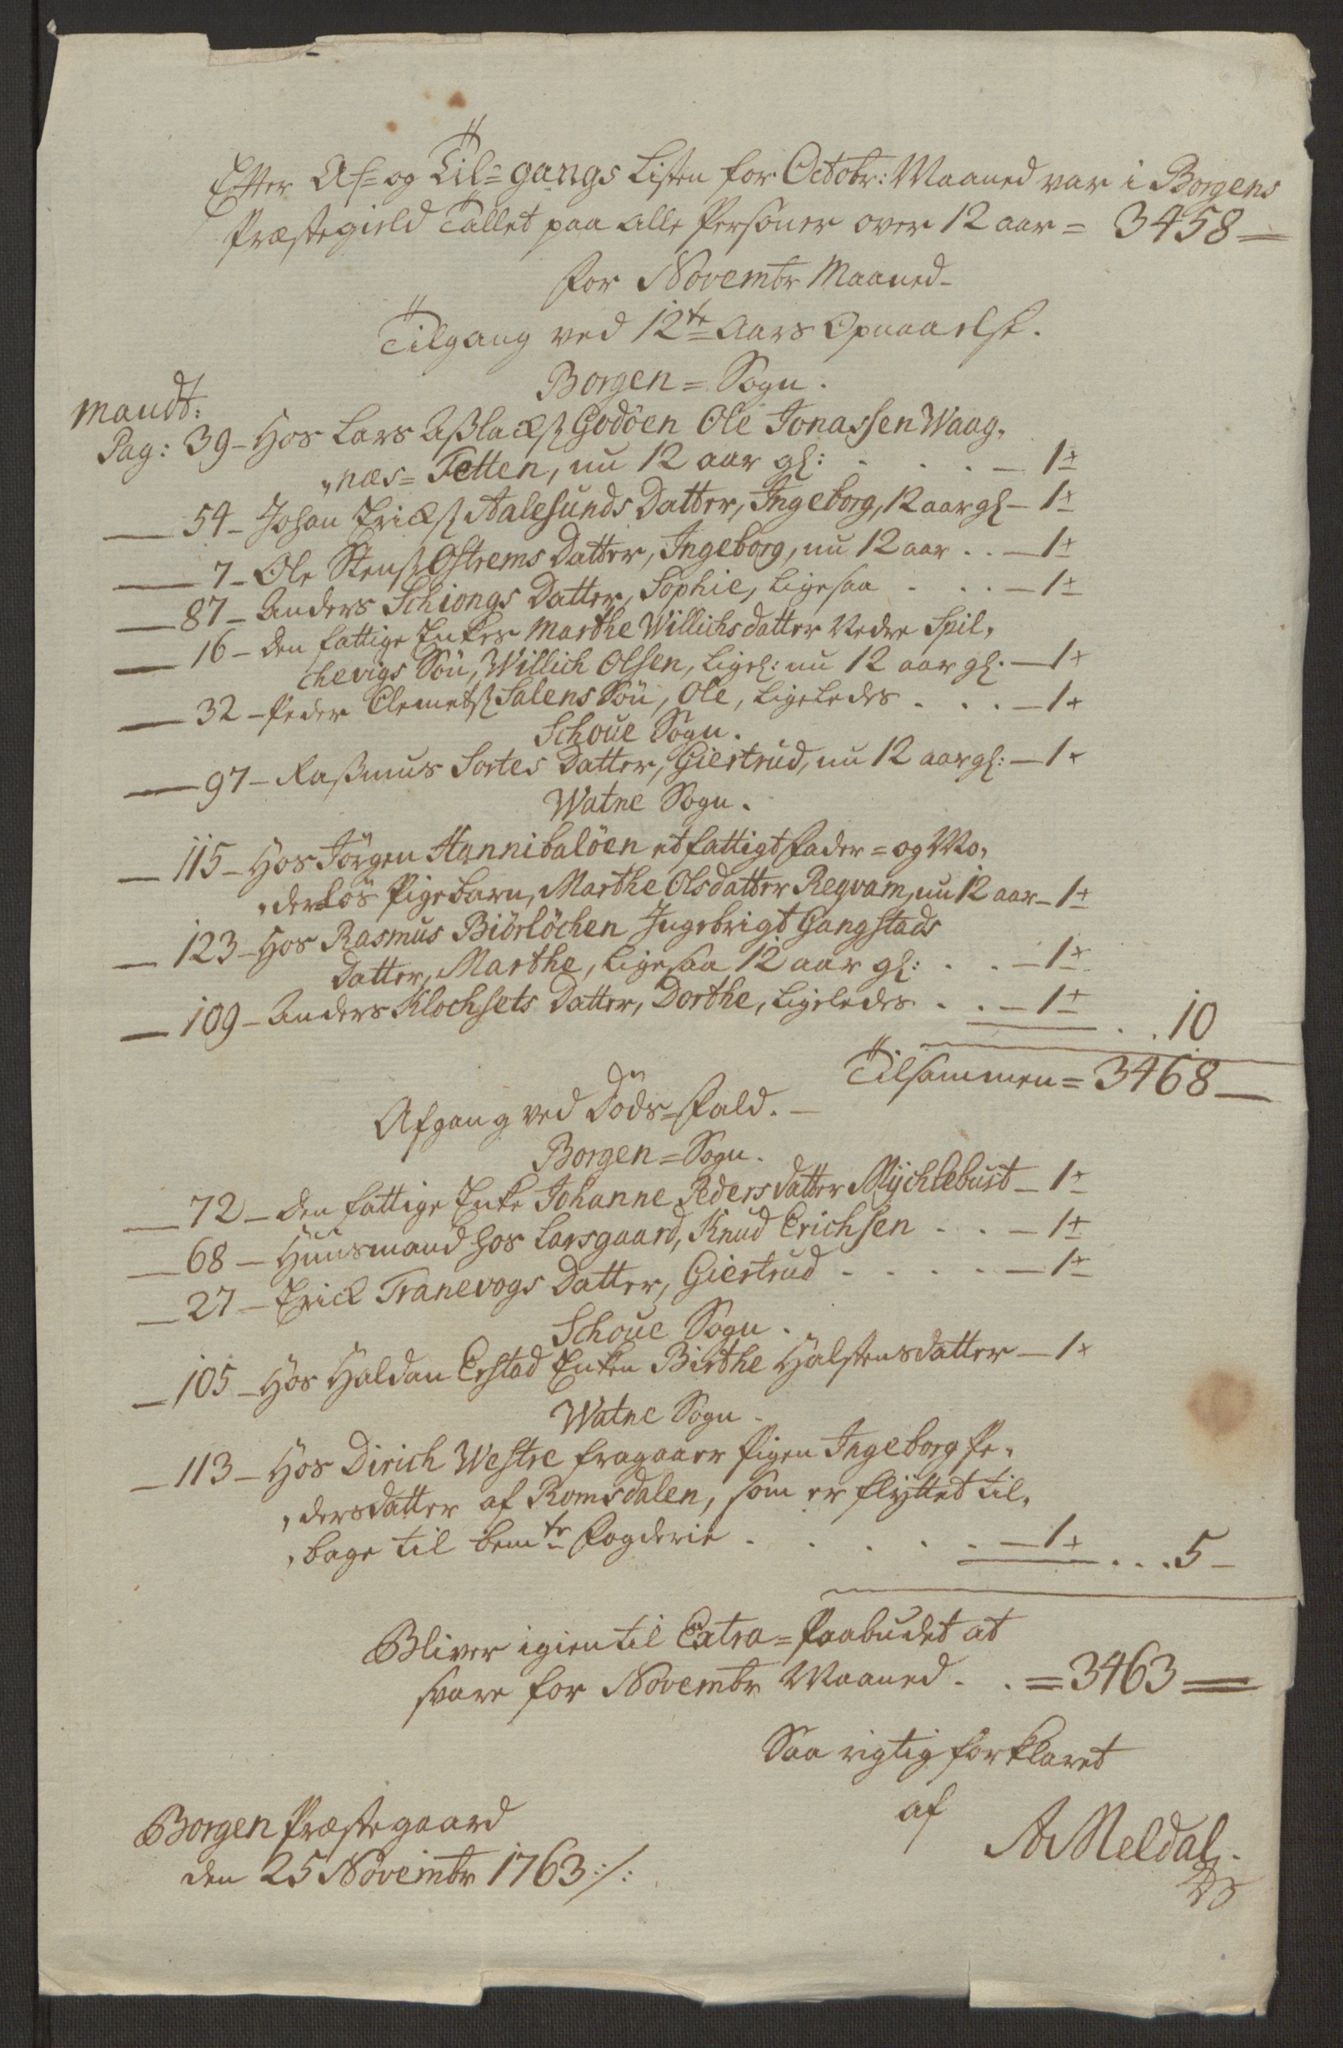 Efter Af= og Til=gangs Listen for Octobr: Maaned var i Borgens
Præstegield Tallet paa alle Personer over 12 aar = 3458 —
for Novembr Maaned –
Tilgang ved 12te Aars Opnaaelse.
Borgen = Sogn.
Mandt:
Pag: 39 – Hos Lars Aßlacß Godöen Ole Jonassen Waag,
„næs = Tetten, nu 12 aar gl: . . . . – 1+
— 54 – Johan Ericß Aalesunds Datter, Ingeborg, 12 aar gl – 1+
— 7 – Ole Stenß Ostrems Datter, Ingeborg, nu 12 aar . . – 1+
— 87 – Anders Schiongs Datter, Sophie, ligesaa . . . – 1+
— 16 – den fattige Enkes Marthe Willichsdatter Nedre Spil,
chevigs Sön, Willich Olsen, ligel: nu 12 aar gl. – 1+
— 32 – Peder Clemetß Salens Sön, Ole, ligeledes . . . – 1+
Schoue Sogn.
— 97 – Raßmus Sortes Datter, Giertrud, nu 12 aar gl: – 1+
Watne Sogn.
— 115 – Hos Jörgen Hannibalöen et fattigt fader = og Mo,
„derlös Pigebarn, Marthe Olsdatter Reqvam, nu 12 aar – 1+
— 123 – Hos Rasmus Biörlöchen Ingebrigt Gangstads
Datter, Marthe, ligesaa 12 aar gl: . . – 1+
— 109 – Anders Klochsets Datter, Dorthe, ligeledes . . – 1+ . . 10
Tilsammen = 3468 —
Afgang ved Döds=fald. –
Borgen = Sogn.
— 72 – den fattige Enke Johanne Pedersdatter Mÿchlebust – 1+
— 68 – Huusmand hos Larsgaard, Knud Erichsen . . – 1+
— 27 – Erick Tranevogs Datter, Giertrud . . . . . – 1+
Schoue Sogn.
— 105 – Hos Haldan Erstad Enken Birthe Halstensdatter – 1+
Watne Sogn.
— 113 – Hos Dirich Westre fragaaer Pigen Ingeborg Pe,
„dersdatter af Romsdalen, som er flÿttet til,
„bage til bemte Fogderie . . . . . – 1+ . . . 5 –
Bliver igien til Extra = Paabudet at
svare for Novembr Maaned . . = 3463 =
Saa rigtig forklaret
af
A Meldal.
Borgen Præstegaard
den 25 Novembr 1763 ./.